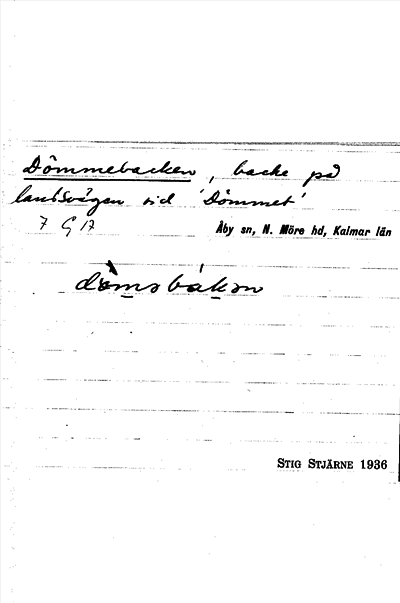 Dömmebacken, backe på
landsvägen vid 'Dömmet'
7 G 17
Åby sn, N. Möre hd, Kalmar län
STIG STJÄRNE 1936